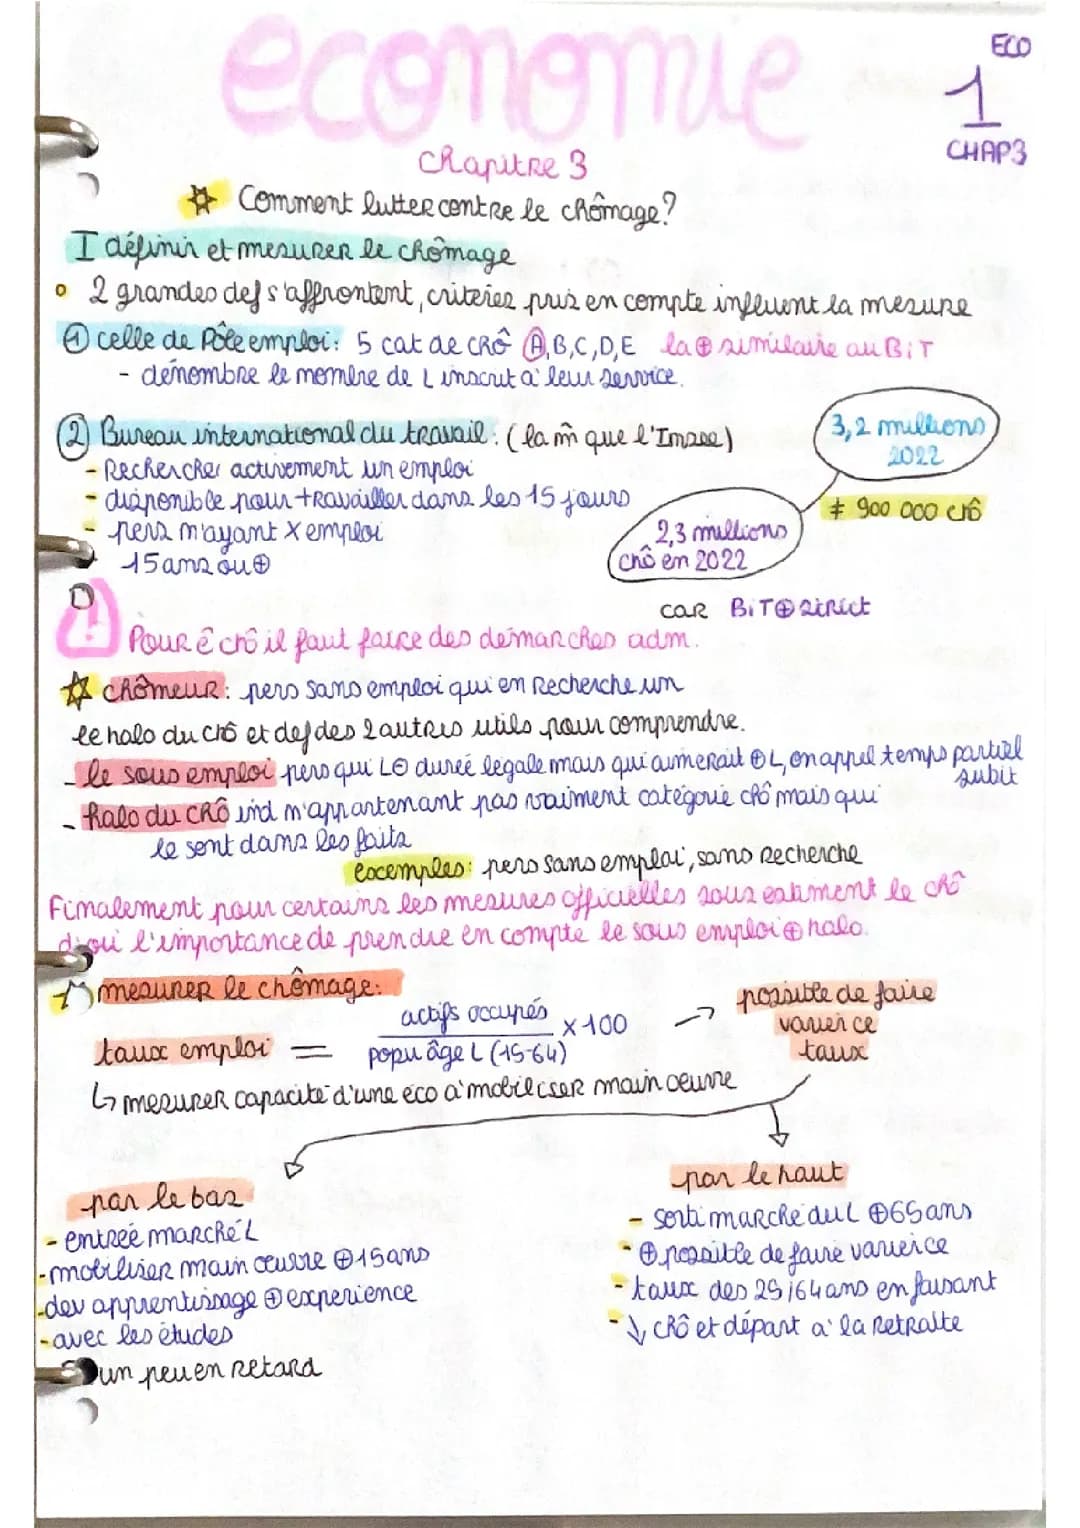 economie
ECO
1
CHAP3
Chapitre 3
☆ Comment lutter contre le chômage?
I définir et mesurer le chômage
° 2 grandes def s'affrontent, criteres pris en compte influent la mesure
① celle de Pôle emploi: 5 cat de chô Ⓐ,B,C,D,E la ⊕ similaire au BiT
- dénombre le nombre de L inscrit a' leur service.
② Bureau international du travail: (la m̂ que l'Insee)
3,2 millions
2022
- Rechercher activement un emploi
- disponible pour travailler dans les 15 jours
≠ 900 000 chô
- pers n'ayant X emploi
2,3 millions
chô en 2022
- 15 ans ou ⊕
car BiT ⊕ strict
!
Pour ê chô il faut faire des démarches adm.
☆ chômeur: pers sans emploi qui en Recherche un
le halo du chô et def des 2 autres utils pour comprendre.
- le sous emploi pers qui L ⊖ dureé legale mais qui aimerait ⊕ L, on appel temps partiel
subit
- halo du chô ind n'appartenant pas vraiment catégorie chô mais qui
le sont dans les faits
excemples: pers sans emploi, sans Recherche
Finalement pour certains les mesures officielles sous estiment le chô
d'où l'importance de prendre en compte le sous emploi ⊕ halo.
mesurer le chômage:
taux emploi = actifs occupés / popu âge L (15-64) x 100 → possible de faire
varier ce
taux
↳ mesurer capacité d'une éco a' mobiliser main oeuvre
par le bas
- entreé marché L
- mobiliser main oeuvre ⊕ 15 ans
- dev apprentissage ⊕ experience
- avec les études
un peu en retard
par le haut
- sorti marché du L ⊕ 65 ans
- ⊕ possible de faire varier ce
- taux des 25/64 ans en faisant
- ↓ chô et départ a' la Retraite